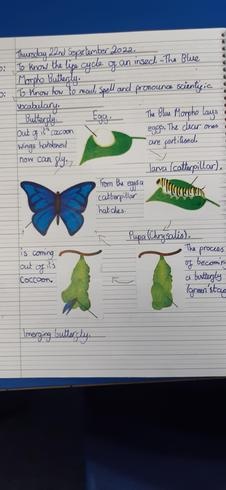 Thursday 22nd September 2022.
O: To know the life cycle of an insect - The Blue
Morpho Butterfly.
O: To know how to read, spell and pronounce scientific
vocabulary.
Butterfly.
Out of it's cocoon
wings hardened
now can fly.
Egg.
The Blue Morpho lays
eggs. The clear ones
are fertilised.
larva (catterpillar).
From the egg a
catterpillar
hatches.
Pupa (Chrysalis).
The process
of becoming
a butterfly
(green stage
is coming
out of it's
coccoon.
Imerging butterfly.